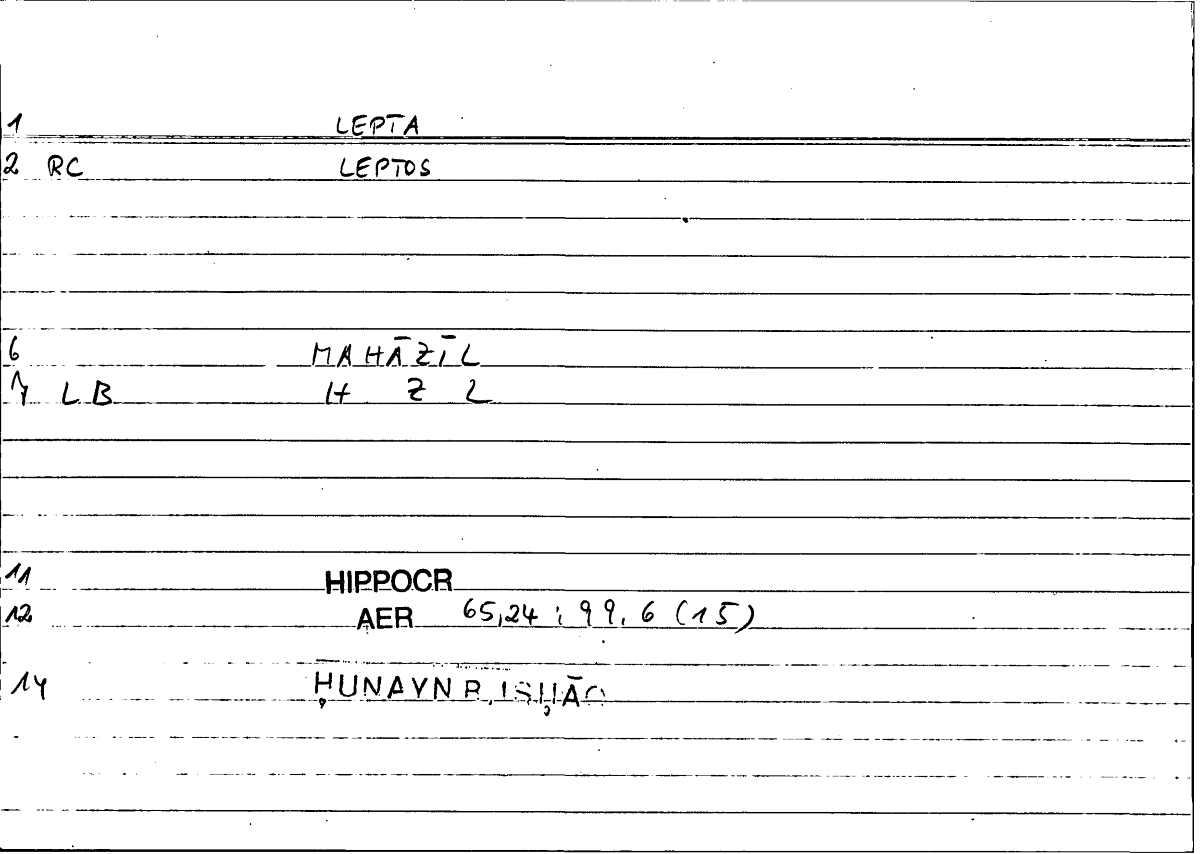 1 LEPTA
2 RC LEPTOS
6 MAHĀZĪL
7 LB H Z L
11 HIPPOCR
12 AER 65,24 ; 99,6 (15)
14 ḤUNAYN B. ISḤĀQ